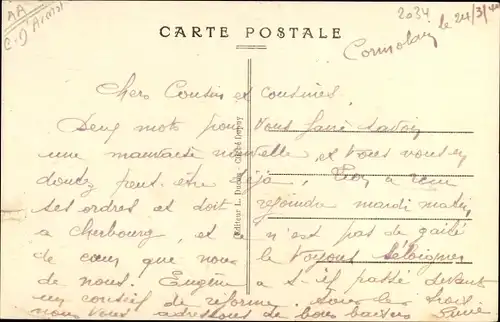 AA
2034
C-d'Armor
CARTE POSTALE
le 24/3/40
Chers Cousin et cousines,
Deux mots pour vous faire savoir
une mauvaise nouvelle et vous vous en
doutez peut-être déjà, a reçu
ses ordres et doit rejoindre mardi matin
a cherbourg, et ce n'est pas de gaité
de cœur que nous le voyons s'éloigner
de nous. Eugène a s-il passé devant
un conseil de reforme. les trois
nous vous adressons de bons baisers
Editeur L. Dubos - Cliché